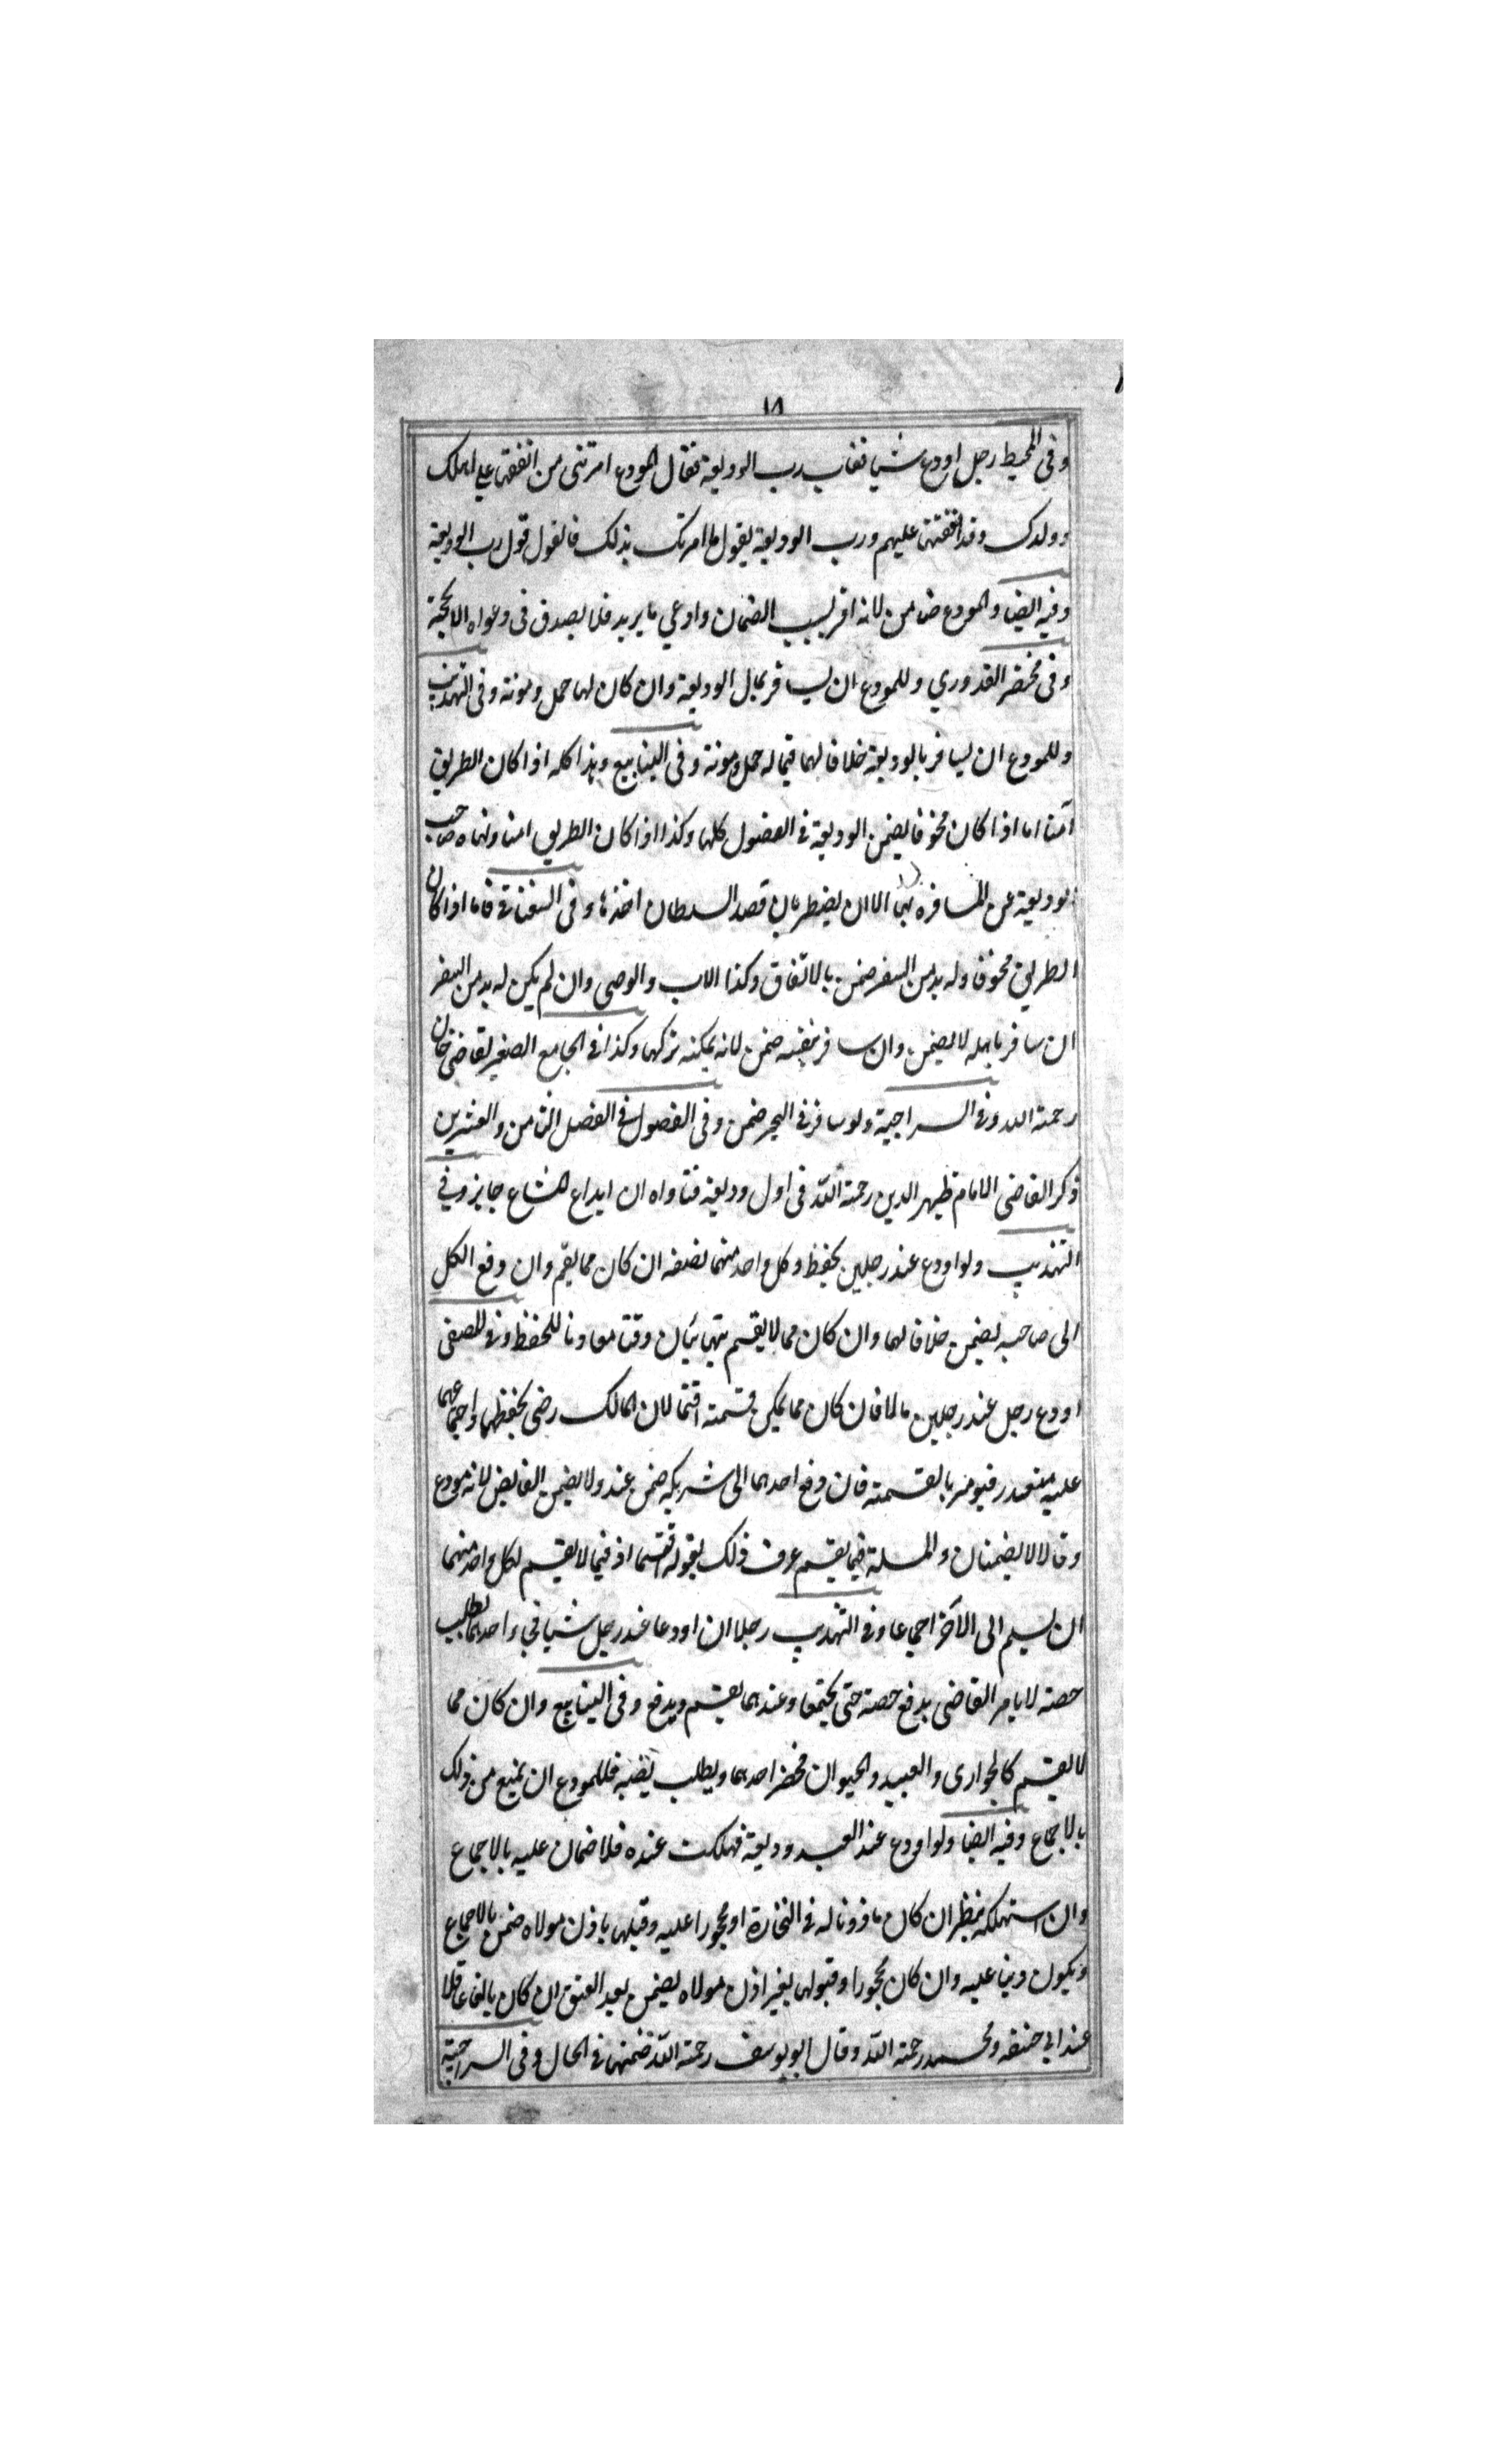 ١٨
وفى المحيط رجل اودع شيا فغاب رب الوديعة فقال المودع امرتنى من انفقها على اهلك
وولدك وقد انفقتها عليهم ورب الوديعة يقول ما امرتك بذلك فالقول قول رب الوديعة
وفيه ايضا والمودع ضامن لانه اقر بسبب الضمان وادعى ما يريد فلا يصدق فى دعواه الا بحجة
وفى مختصر القدوري وللمودع ان يسافر بمال الوديعة وان كان لها حمل ومونة وفى التهذيب
وللمودع ان يسافر بالوديعة خلافا لهما فيما له حمل ومونة وفى الينابيع وهذا كله اذا كان الطريق
آمنا اما اذا كان مخوفا يضمن الوديعة فى الفصول كلها وكذا اذا كان الطريق امنا ونهاه صاحب
الوديعة عن المسافرة بها الا ان يضطر بان قصد السلطان اخذها وفى السغناقى فاما اذا كان
الطريق مخوفا وله بد من السفر ضمن بالاتفاق وكذا الاب والوصى وان لم يكن له بد من السفر
ان سافر باهله لا يضمن وان سافر بنفسه ضمن لانه يمكنه تركها وكذا فى الجامع الصغير لقاضى خان
رحمة الله وفى السراجية ولو سافر فى البحر ضمن وفى الفصول فى الفصل الثامن والعشرين
ذكر القاضى الامام ظهير الدين رحمة الله فى اول وديعة فتاواه ان ايداع المشاع جايز وفى
التهذيب ولو اودع عند رجلين يحفظ وكل واحد منهما نصفه ان كان مما يقسم وان دفع الكل
الى صاحبه يضمن خلافا لهما وان كان مما لا يقسم يتهايئان وقتا معاونا للحفظ وفى المصفى
اودع رجل عند رجلين مالا فان كان مما يمكن قسمته اقتسما لان المالك رضى بحفظهما واجتماعهما
عليه متعذر فيومر بالقسمة فان دفع احدهما الى شريكه ضمن عنده ولا يضمن القابض لانه مودع
وقالا لا يضمنان والمسلة فيما يقسم عرف ذلك بقوله اقتسما اذ فيما لا يقسم لكل واحد منهما
ان يسلم الى الآخر اجماعا وفى التهذيب رجلان اودعا عند رجل شيا فجاء احدهما يطلب
حصته لا يامر القاضى بدفع حصته حتى يجتمعا وعندهما يقسم ويدفع وفى الينابيع وان كان مما
لا يقسم كالجوارى والعبيد والحيوان فحضر احدهما ويطلب نصيبه فللمودع ان يمنع من ذلك
بالاجماع وفيه ايضا ولو اودع عند العبد وديعة فهلكت عنده فلا ضمان عليه بالاجماع
وان استهلكه ينظر ان كان ماذونا له فى التجارة او محجورا عليه وقبلها باذن مولاه ضمن بالاجماع
ويكون دينا عليه وان كان محجورا وقبولها بغير اذن مولاه يضمن بعد العتق ان كان بالغا عاقلا
عند ابي حنيفة ومحمد رحمة الله وقال ابو يوسف رحمة الله يضمنها فى الحال وفى السراجية